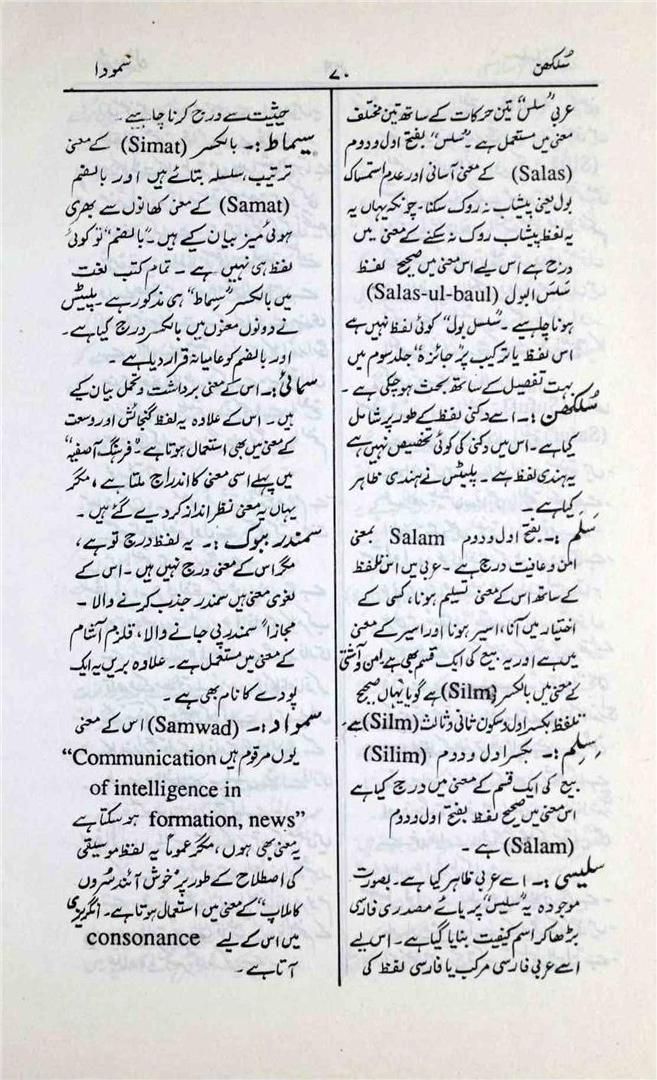 سُلکھن
۷۰
سمودا
عربی "سلس" تین حرکات کے ساتھ تین مختلف
معنی میں مستعمل ہے۔ "سَلَس" بفتح اول و دوم
(Salas) کے معنی آسانی اور عدم استمساک
بول یعنی پیشاب نہ روک سکنا۔ چونکہ یہاں یہ
یہ لفظ پیشاب روک نہ سکنے کے معنی میں
درج ہے اس لیے اس معنی میں صحیح لفظ
سَلَسَ البول (Salas-ul-baul)
ہونا چاہیے۔ "سلسل بول" کوئی لفظ نہیں ہے
اس لفظ یا ترکیب پر "جائزہ" جلد سوم میں
بہت تفصیل کے ساتھ بحث ہو چکی ہے۔
سُلکھن :۔ اسے دکنی لفظ کے طور پر شامل
کیا ہے۔ اس میں دکنی کی کوئی تخصیص نہیں ہے
یہ ہندی لفظ ہے۔ پلیٹس نے ہندی ظاہر
کیا ہے۔
سَلَم :۔ بفتح اول و دوم Salam بمعنی
امن و عافیت درج ہے۔ عربی میں اس تلفظ
کے ساتھ اس کے معنی تسلیم ہونا، کسی کے
اختیار میں آنا، اسیر ہونا اور اسیر کے معنی
میں ہے اور یہ بیع کی ایک قسم بھی ہے امن و آشتی
کے معنی میں بالکسر (Silm) ہے گویا یہاں صحیح
تلفظ بکسر اول و سکون ثانی و ثالث (Silm) ہے۔
سِلِم :۔ بکسر اول و دوم (Silim)
بیع کی ایک قسم کے معنی میں درج کیا ہے
اس معنی میں صحیح لفظ بفتح اول و دوم
(Salam) ہے۔
سلیسی :۔ اسے عربی ظاہر کیا ہے۔ بصورت
موجودہ یہ "سلیس" پر یائے مصدری فارسی
بڑھا کر اسم کیفیت بنایا گیا ہے۔ اس لیے
اسے عربی فارسی مرکب یا فارسی لفظ کی
حیثیت سے درج کرنا چاہیے۔
سِماط :۔ بالکسر (Simat) کے معنی
ترتیب، سلسلہ بتائے ہیں اور بالضم
(Samat) کے معنی کھانوں سے بھری
ہوئی میز بیان کیے ہیں۔ "بالضم" تو کوئی
لفظ ہی نہیں ہے۔ تمام کتب لغت
میں بالکسر "سِماط" ہی مذکور ہے۔ پلیٹس
نے دونوں معنوں میں بالکسر درج کیا ہے۔
اور بالضم کو عامیانہ قرار دیا ہے۔
سمائی :۔ اس کے معنی برداشت و تحمل بیان کیے
ہیں۔ اس کے علاوہ یہ لفظ گنجائش اور وسعت
کے معنی میں بھی استعمال ہوتا ہے۔ "فرہنگ آصفیہ"
میں پہلے اسی معنی کا اندراج ملتا ہے، مگر
یہاں یہ معنی نظر انداز کر دیے گئے ہیں۔
سمندر بوک :۔ یہ لفظ درج تو ہے،
مگر اس کے معنی درج نہیں ہیں۔ اس کے
لغوی معنی ہیں سمندر جذب کرنے والا۔
مجازاً سمندر پی جانے والا، قلزم آشام
کے معنی میں مستعمل ہے۔ علاوہ بریں یہ ایک
پودے کا نام بھی ہے۔
سمواد :۔ (Samwad) اس کے معنی
یوں مرقوم ہیں "Communication
of intelligence in
formation, news" ہو سکتا ہے
یہ معنی بھی ہوں، مگر عموماً یہ لفظ موسیقی
کی اصطلاح کے طور پر "خوش آئند سُروں
کا ملاپ" کے معنی میں استعمال ہوتا ہے۔ انگریزی
میں اس کے لیے consonance
آتا ہے۔